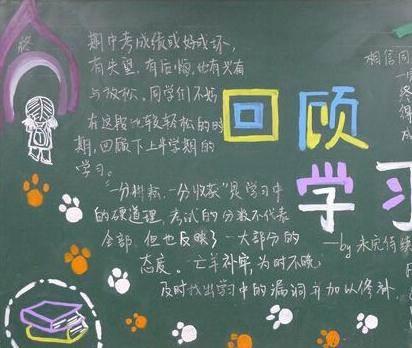 期中考成绩或好或坏，
有失望，有后悔，也有兴奋
与放松。同学们不妨
在这段比较轻松的时
期，回顾下上半学期的
学习。
"一分耕耘，一分收获"是学习中
的硬道理，考试的分数不代表
全部，但也反映了一大部分的
态度。亡羊补牢，为时不晚，
及时找出学习中的漏洞并加以修补
回顾
学习
相信同